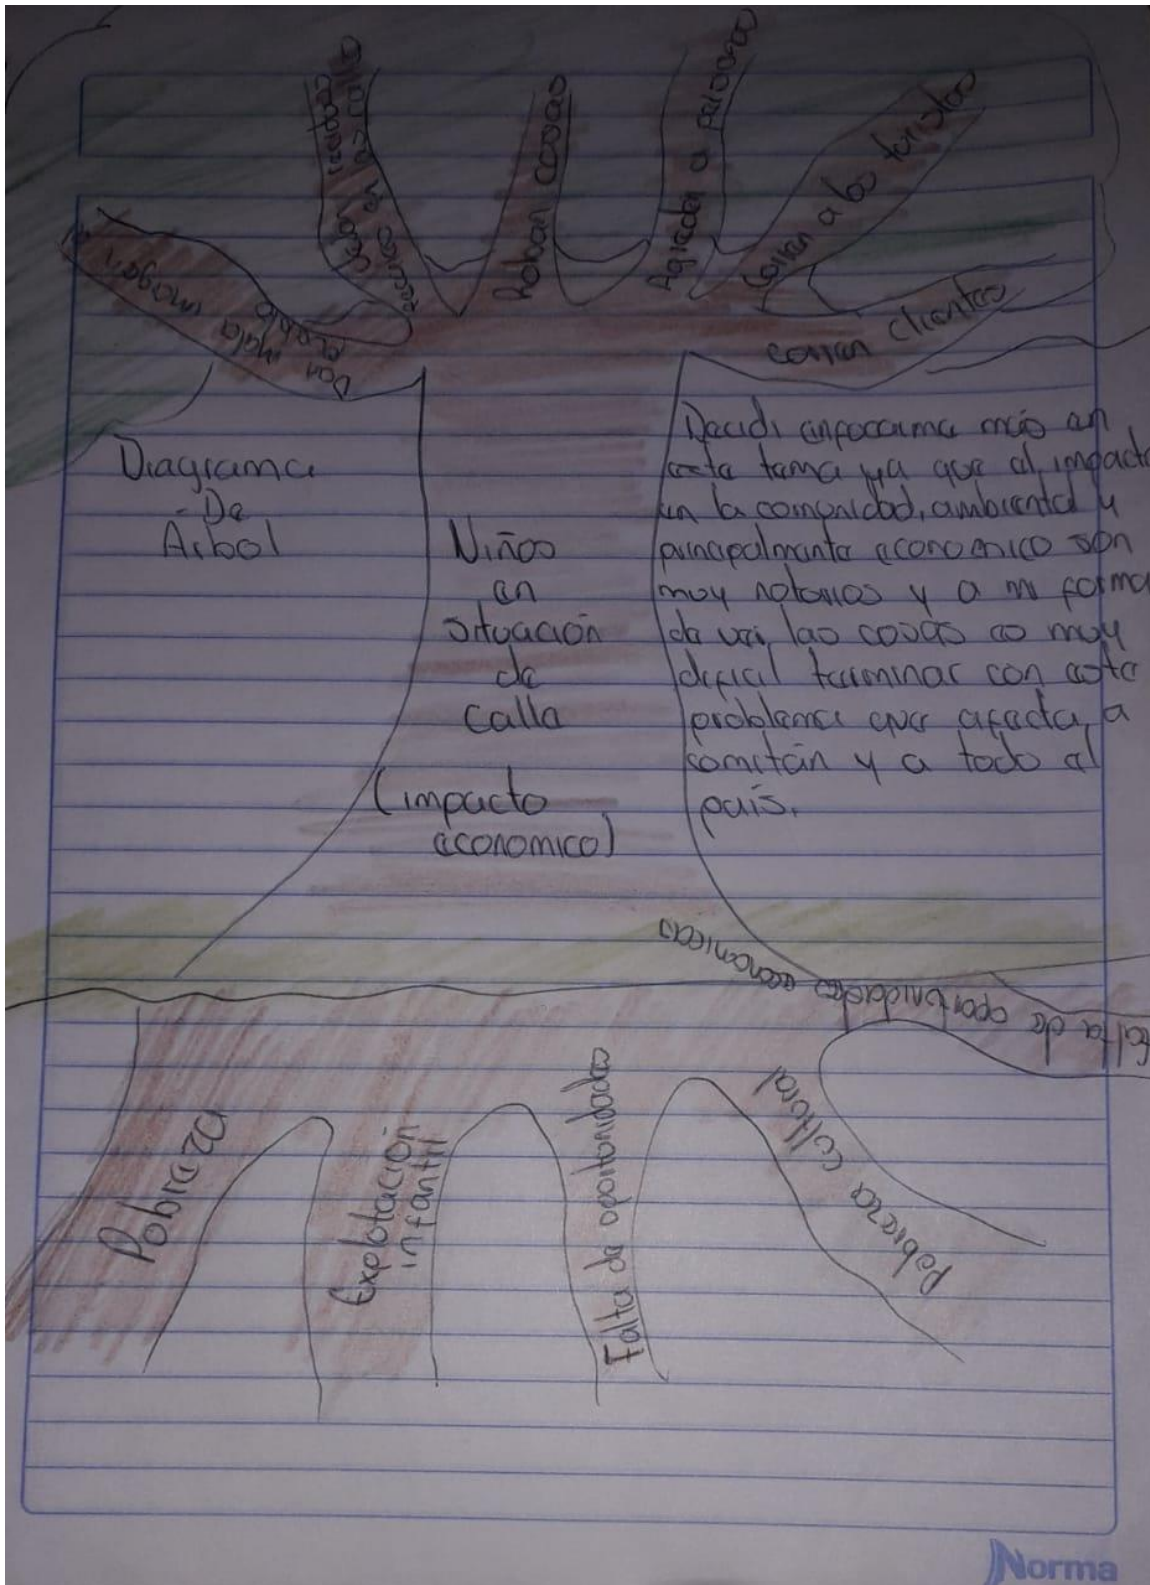 Dan mala imagen
al pueblo
Dejan residuos
Roban cosas
Agreden a personas
Corren a los turistas
corren clientes
Diagrama
De
Árbol
Niños
en
situación
de
calle
(impacto
economico)
Decidi enfocarme más en
este tema ya que el impacto
en la comunidad, ambiental y
principalmente economico son
muy notorios y a mi forma
de ver las cosas es muy
dificil terminar con este
problema que afecta a
comitán y a todo el
país.
falta de oportunidades economicas
Pobreza
Explotación
infantil
Falta de oportunidades
Pobreza cultural
Norma